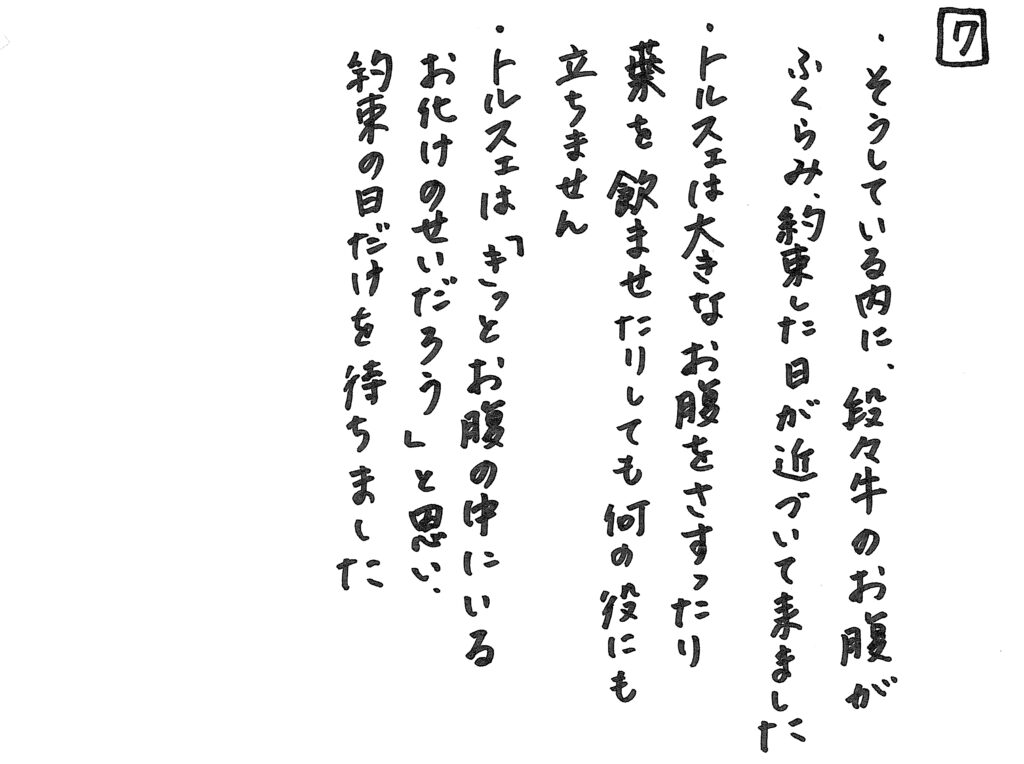 7
・そうしている内に、段々牛のお腹が
ふくらみ、約束した日が近づいて来ました
・トルスェは大きなお腹をさすったり
薬を飲ませたりしても何の役にも
立ちません
・トルスェは「きっとお腹の中にいる
お化けのせいだろう」と思い、
約束の日だけを待ちました